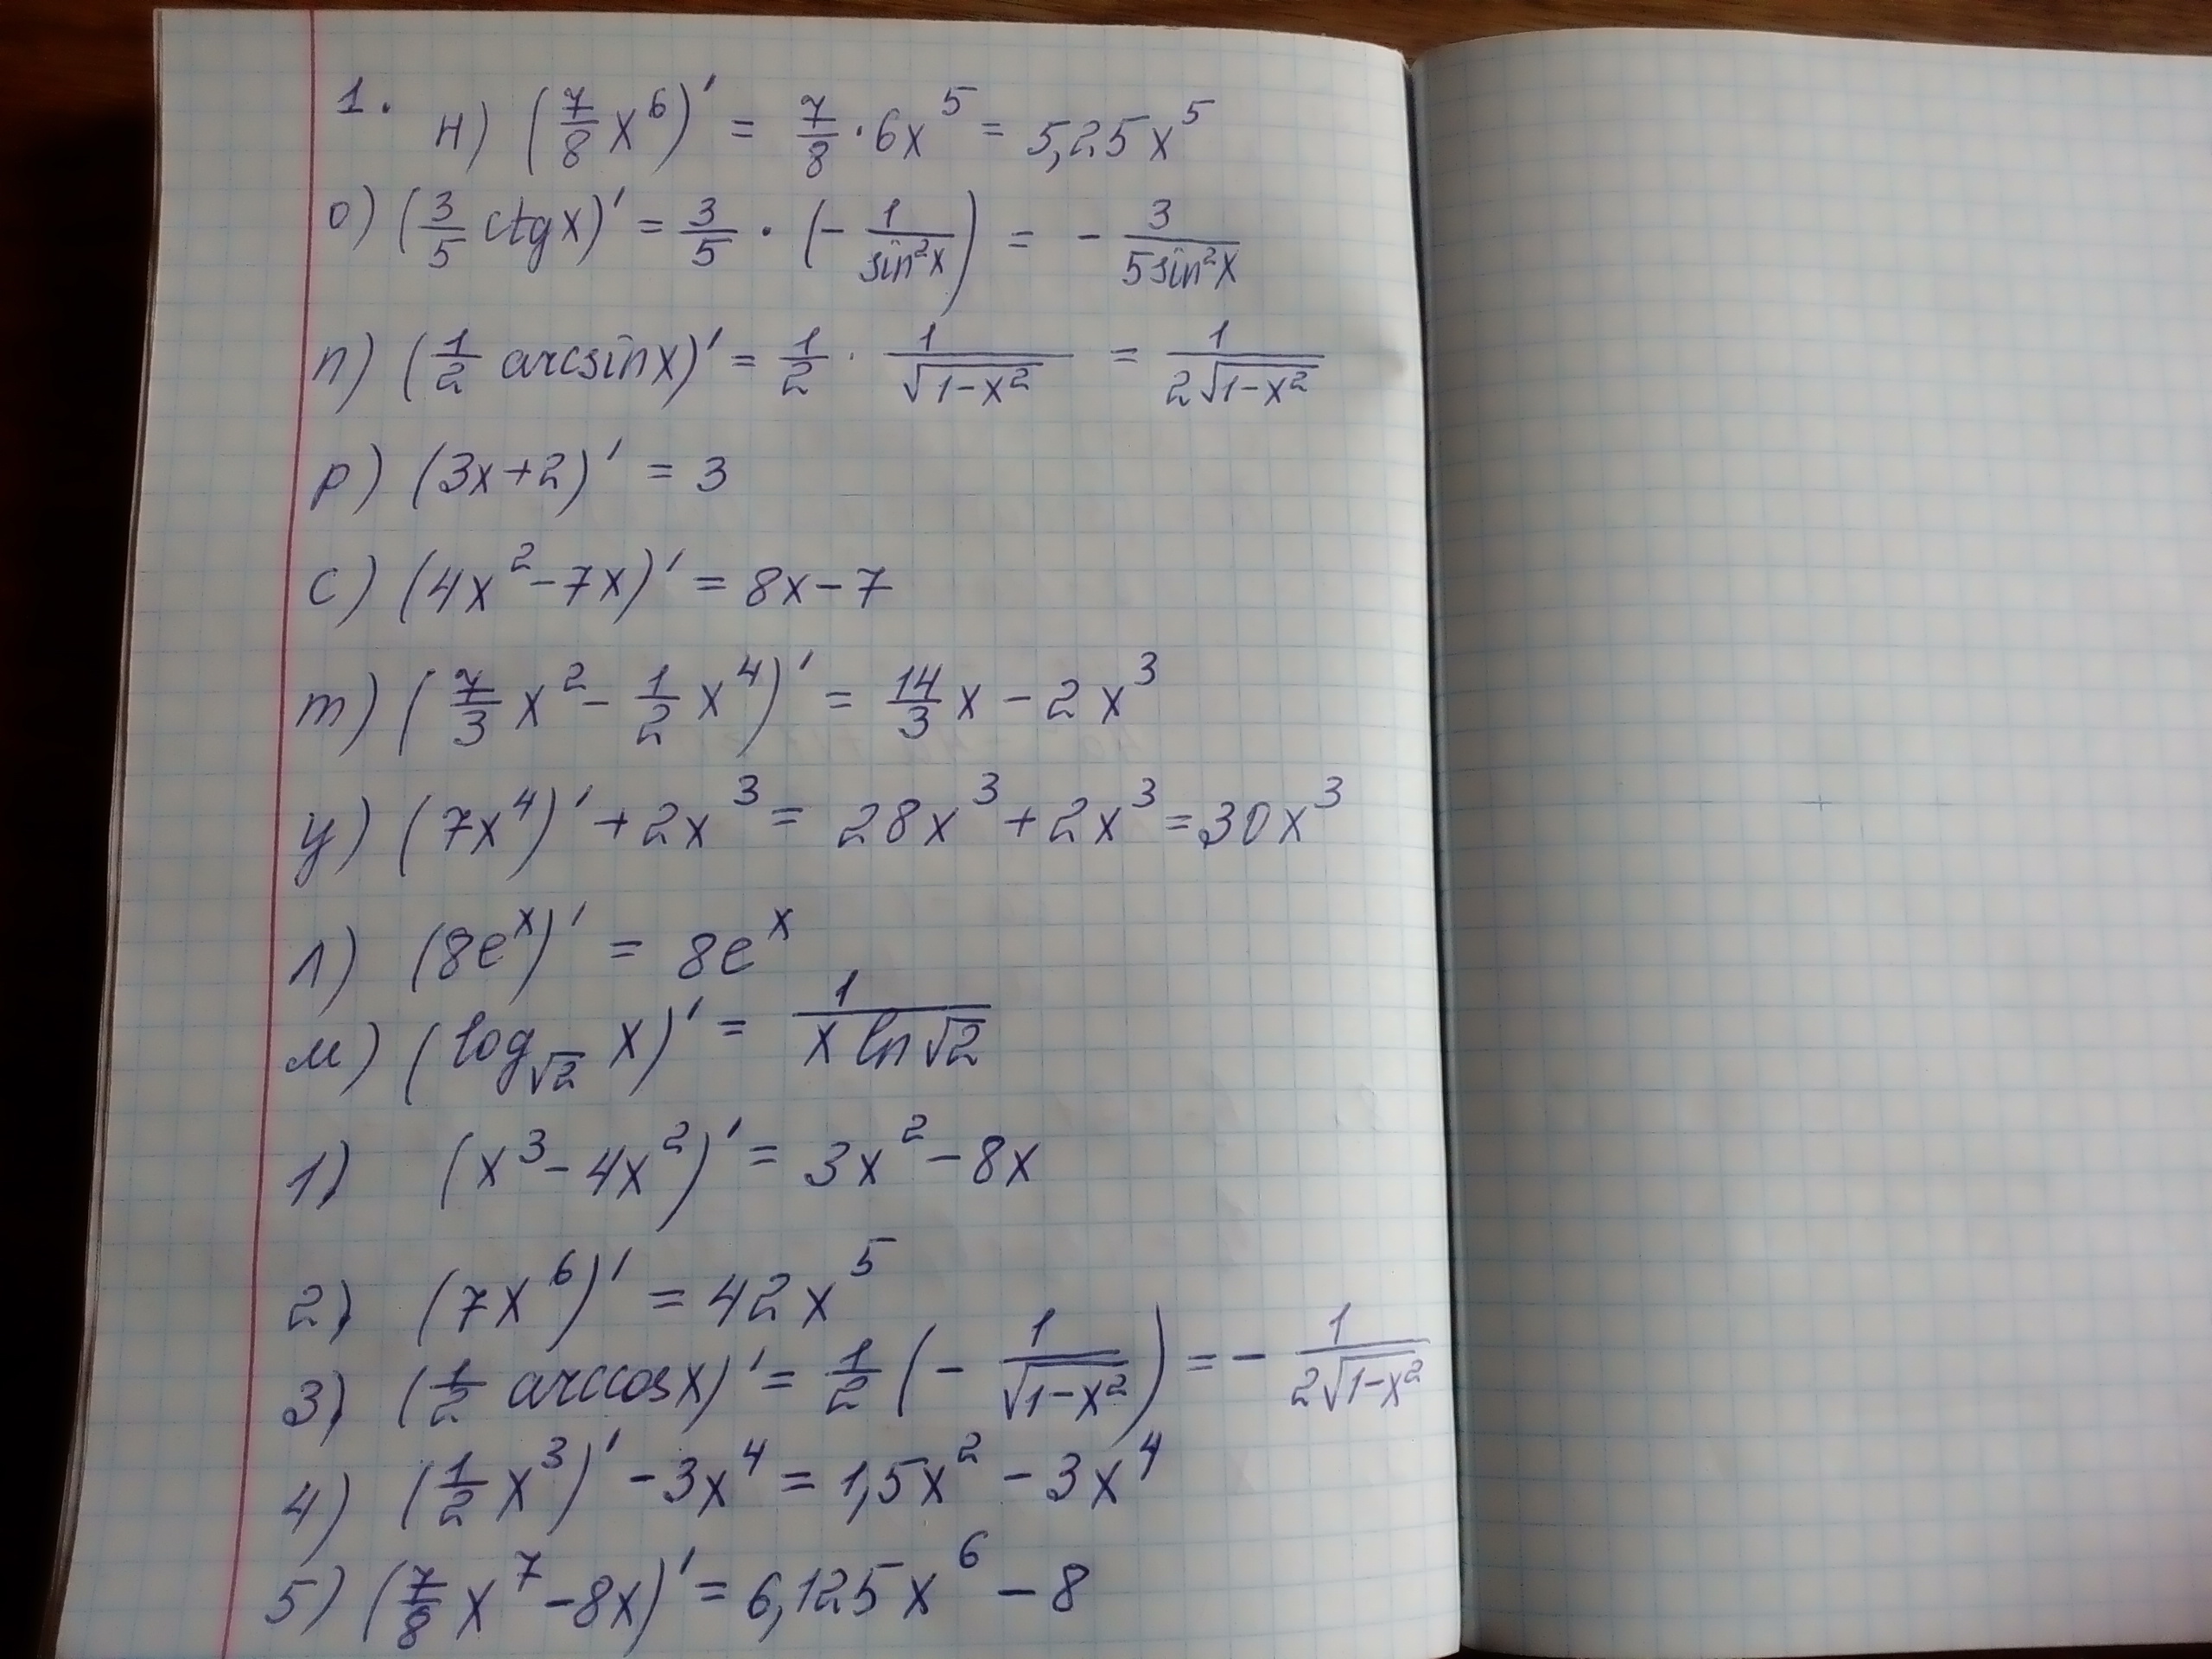 1. н) (7/8 x⁶)' = 7/8 · 6x⁵ = 5,25x⁵
о) (3/5 ctgx)' = 3/5 · (- 1/sin²x) = - 3/5sin²x
п) (1/2 arcsinx)' = 1/2 · 1/√1-x² = 1/2√1-x²
р) (3x+2)' = 3
с) (4x²-7x)' = 8x-7
т) (7/3 x² - 1/2 x⁴)' = 14/3 x - 2x³
у) (7x⁴)' + 2x³ = 28x³ + 2x³ = 30x³
л) (8eˣ)' = 8eˣ
м) (log_√2 x)' = 1/x ln√2
1) (x³ - 4x²)' = 3x² - 8x
2) (7x⁶)' = 42x⁵
3) (1/2 arccosx)' = 1/2 (- 1/√1-x²) = - 1/2√1-x²
4) (1/2 x³)' - 3x⁴ = 1,5x² - 3x⁴
5) (7/8 x⁷ - 8x)' = 6,125x⁶ - 8